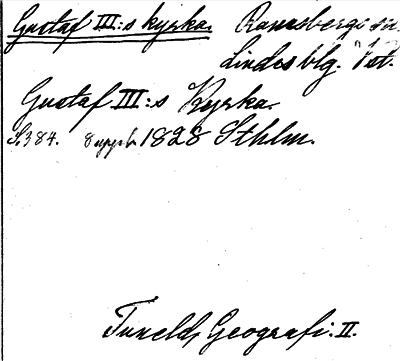 Gustaf III:s kyrka. Ramsbergs sn.
Lindesblg. Vst.
Gustaf III:s Kyrka.
S. 384. 8 uppl. 1828 Sthlm.
Tunelds Geografi. II.